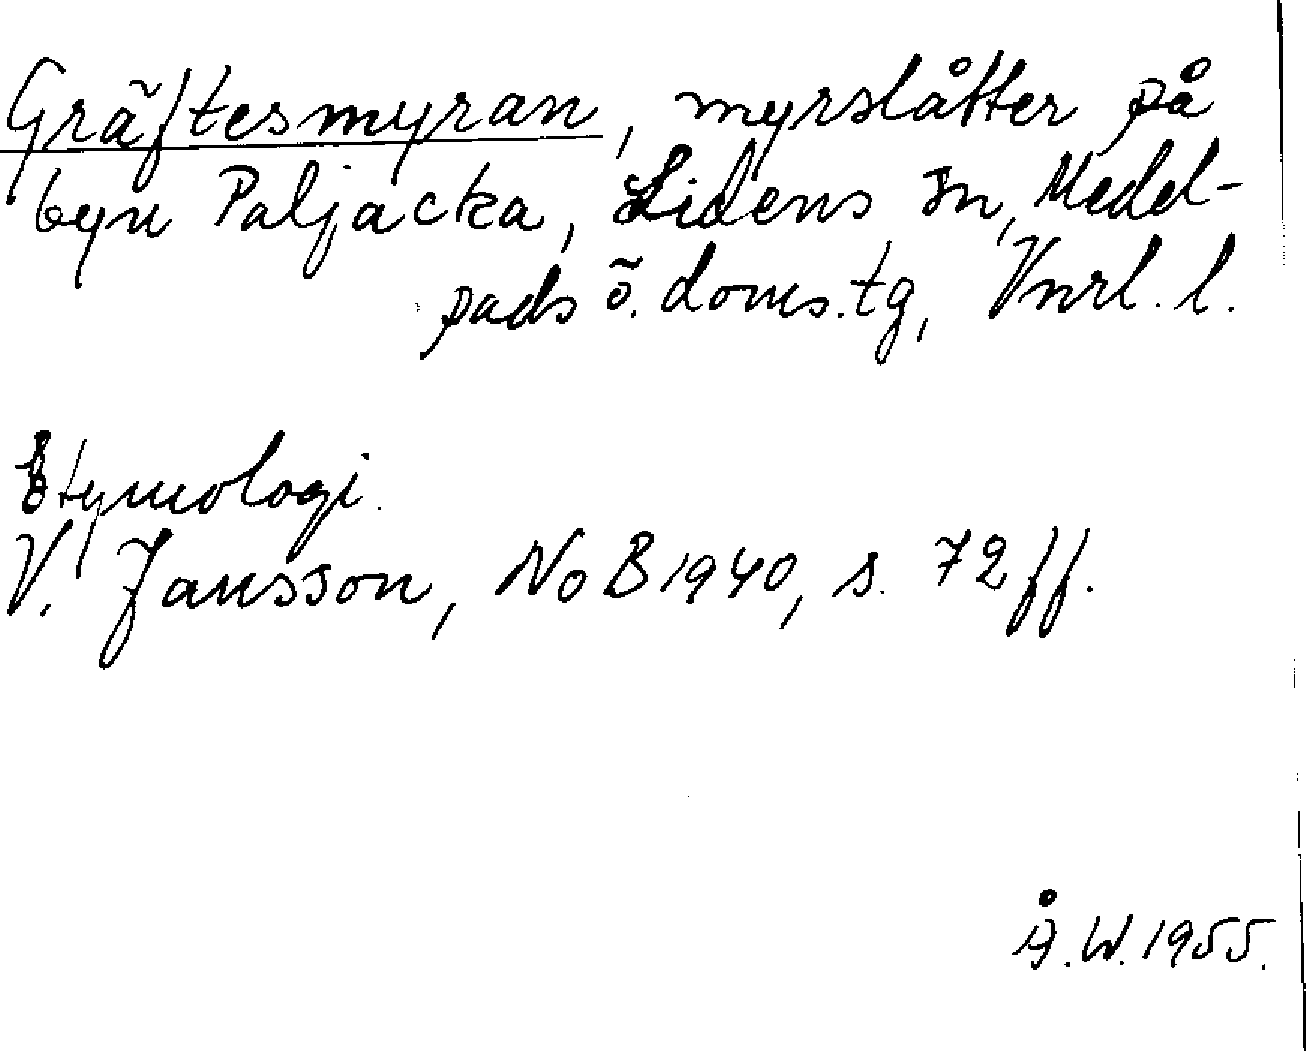 Gräftesmyran, myrslåtter på
byn Paljacka, Lidens sn, Medel-
pads ö. doms.tg, Vnrl. l.
Etymologi.
V. Jansson, NoB 1940, s. 72 ff.
Å.W. 1955.